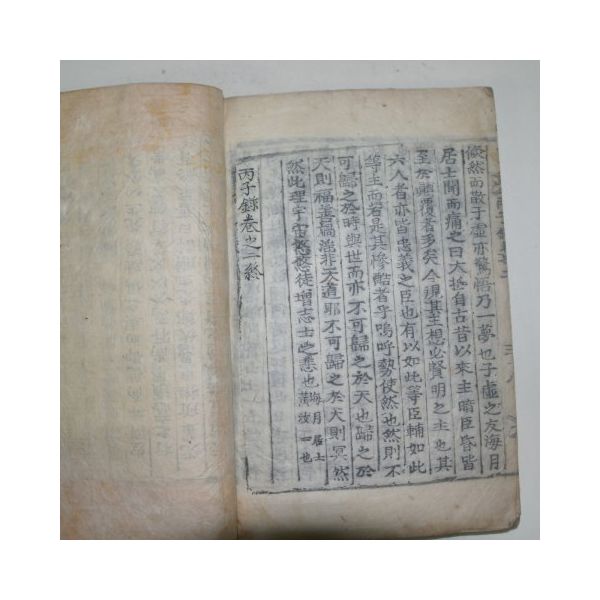 倐然而散子虛亦驚悟乃一夢也子虛之友海月
居士聞而痛之曰大抵自古昔以來主暗臣昏皆
至於顚覆者多矣今觀其主想必賢明之主也其
六人者亦皆忠義之臣也有以如此等臣輔如此
等主而若是其慘酷者乎嗚呼勢使然也然則不
可歸之於時與世而亦不可歸之於天也歸之於
天則福善禍淫非天道耶不可歸之於天則冥然
然此理宇宙悠悠徒增志士之悲也 海月居士黃汝一也
丙子錄卷之二終